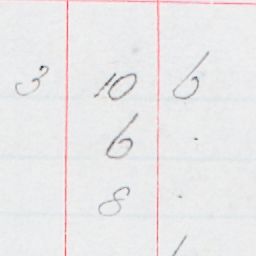 3 10 6
6 .
8 .